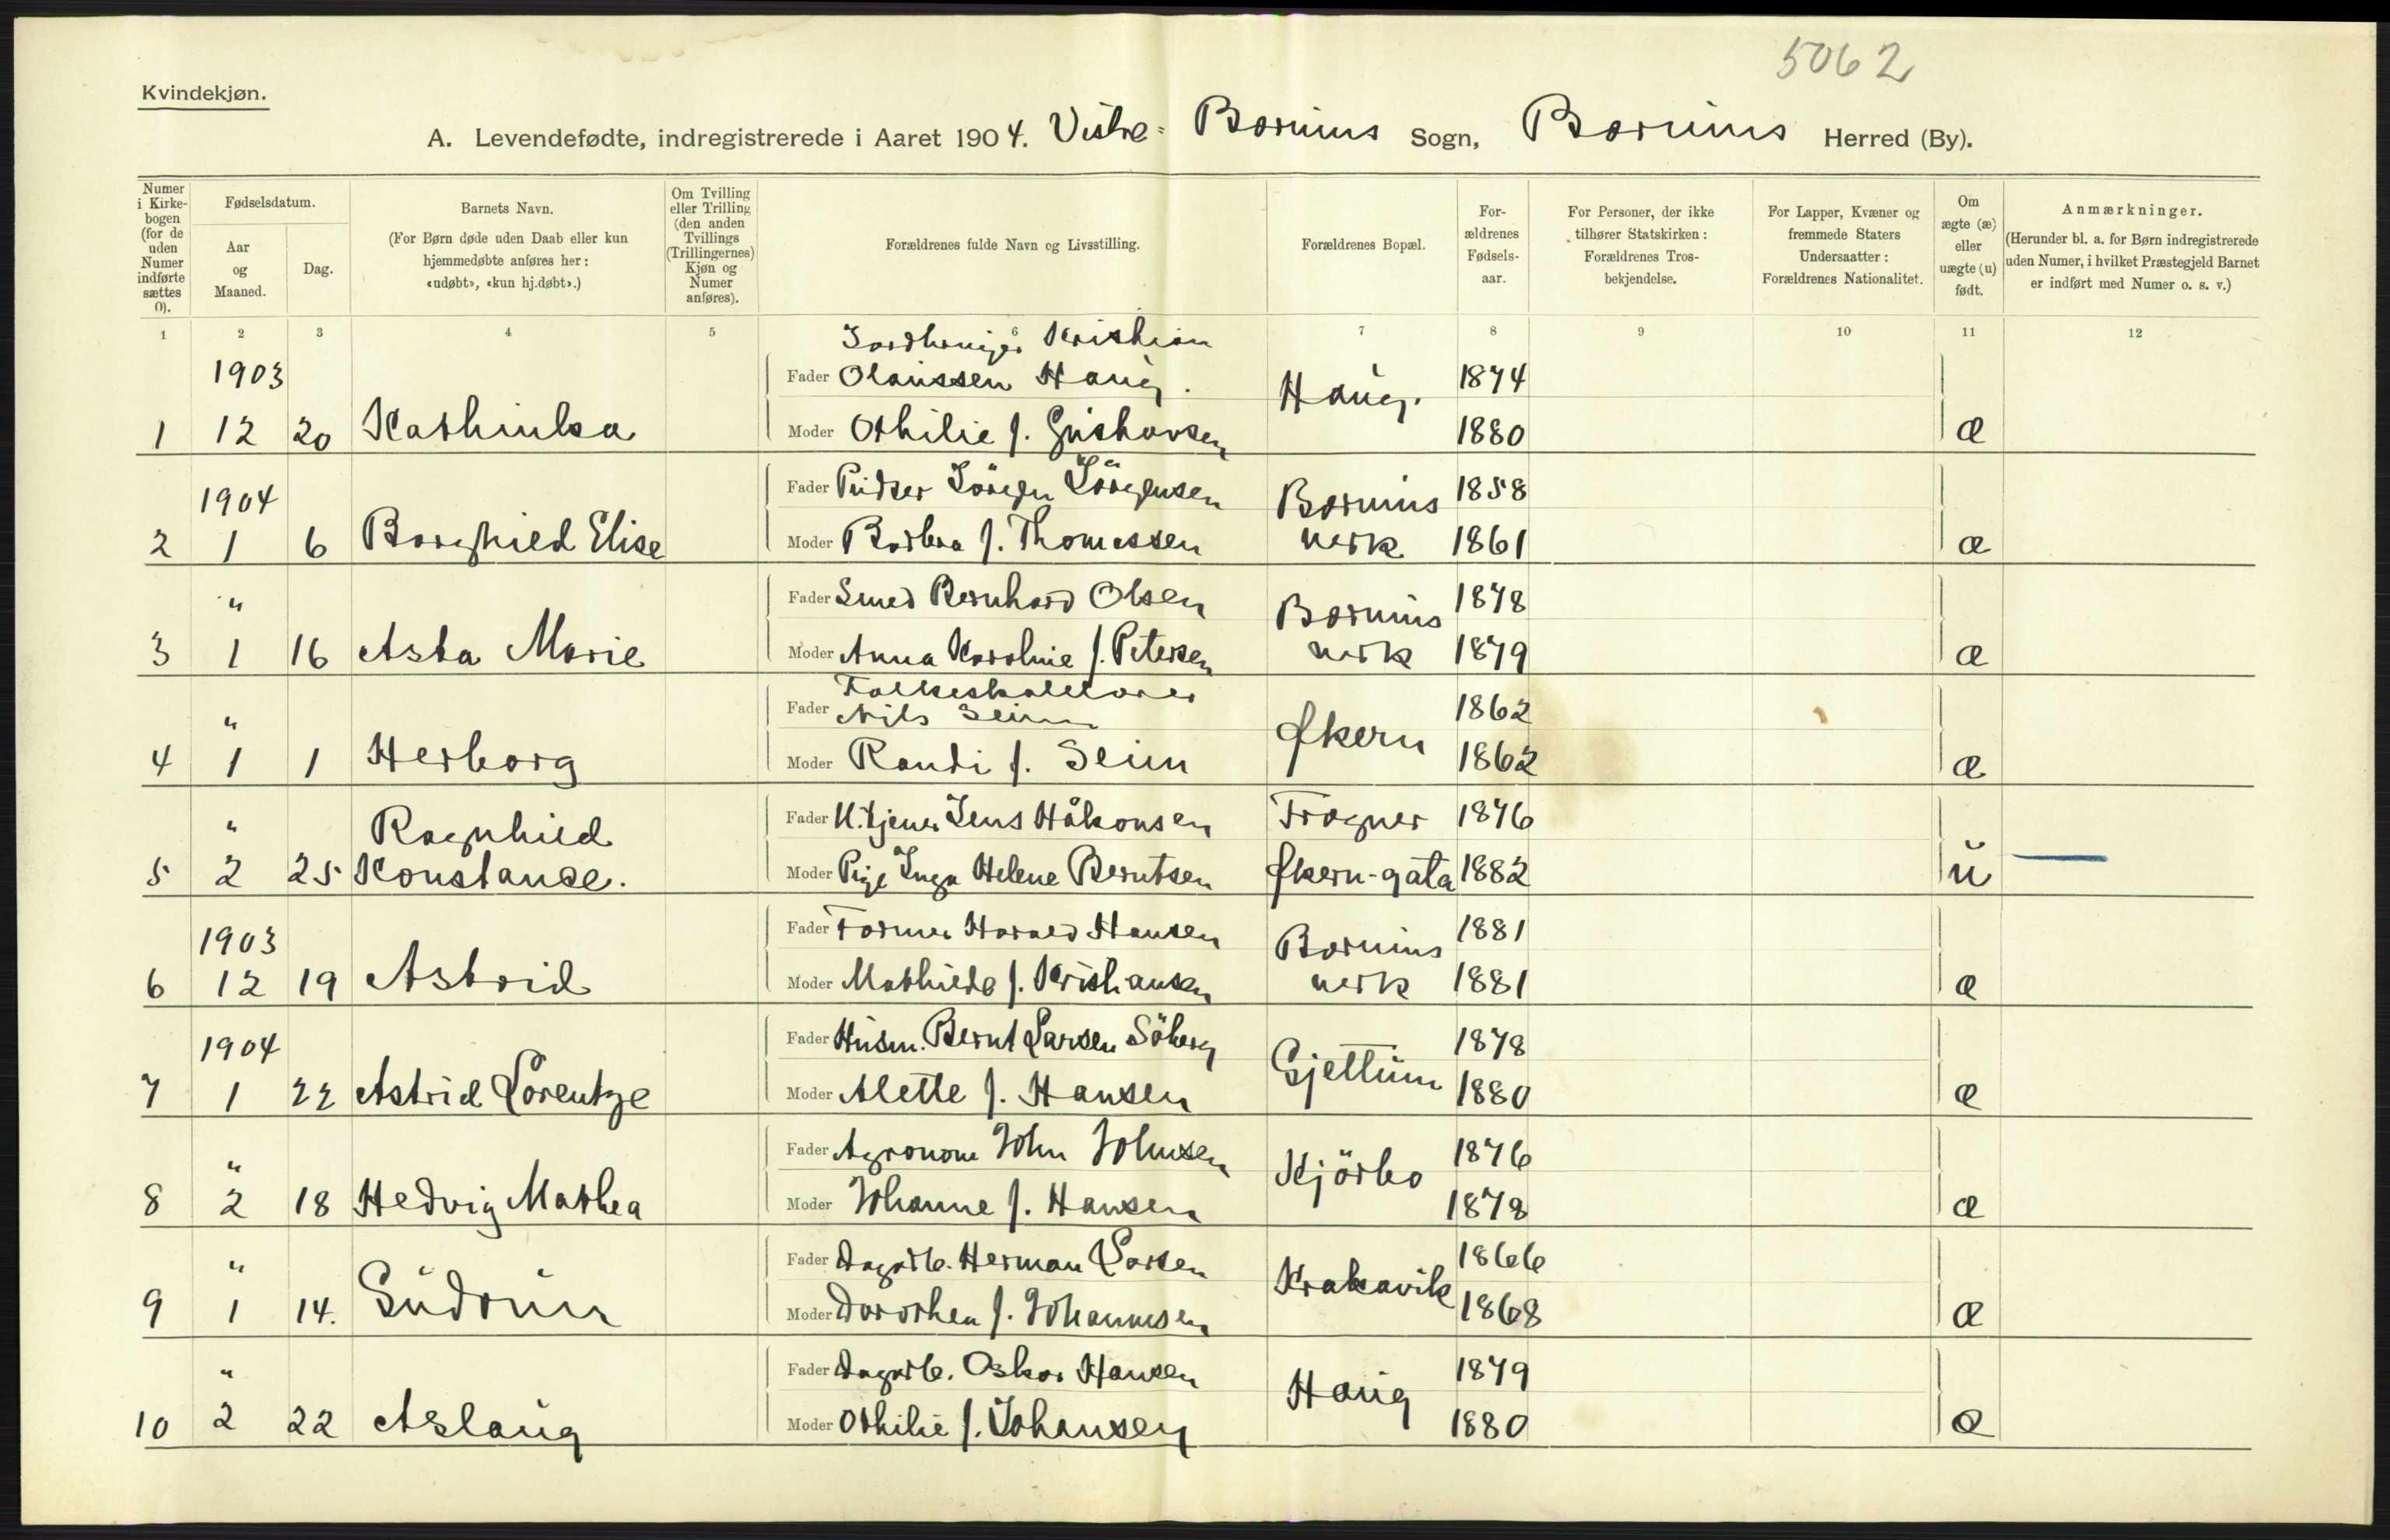 5062
Kvindekjøn.
A. Levendefødte, indregistrerede i Aaret 1904. Vestre- Bærums Sogn, Bærums Herred (By).
Numer i Kirkebogen (for de uden Numer indførte sættes 0).
Fødselsdatum.
Aar og Maaned.
Dag.
Barnets Navn.
(For Børn døde uden Daab eller kun hjemmedøbte anføres her: «udøbt», «kun hj.døbt».)
Om Tvilling eller Trilling (den anden Tvillings (Trillingernes) Kjøn og Numer anføres).
Forældrenes fulde Navn og Livsstilling.
Forældrenes Bopæl.
Forældrenes Fødselsaar.
For Personer, der ikke tilhører Statskirken: Forældrenes Trosbekjendelse.
For Lapper, Kvæner og fremmede Staters Undersaatter: Forældrenes Nationalitet.
Om ægte (æ) eller uægte (u) født.
Anmærkninger.
(Herunder bl. a. for Børn indregistrerede uden Numer, i hvilket Præstegjeld Barnet er indført med Numer o. s. v.)
1 2 3 4 5 6 7 8 9 10 11 12
1903 Jordbruger Kristian
Fader Olaussen Haug. Haug. 1874
1 12 20 Kathinka Moder Othilie f. Gustavsen 1880 æ
1904 Fader Pudser Jörgen Jörgensen Bærums 1858
2 1 6 Borghild Elise Moder Barbra f. Thomassen verk 1861 æ
" Fader Smed Bernhard Olsen Bærums 1878
3 1 16 Asta Marie Moder Anna Karoline f. Petersen verk 1879 æ
Folkeskolelærer
" Fader Nils Seim Økern 1862
4 1 1 Herborg Moder Randi f. Seim 1862 æ
" Ragnhild Fader U.tjener Jens Håkonsen Frogner 1876
5 2 25 Konstance. Moder Pige Inga Helene Berntsen Økern-gata 1882 u
1903 Fader Former Harald Hansen Bærums 1881
6 12 19 Astrid Moder Mathilde f. Kristiansen verk 1881 æ
1904 Fader Husm. Bernt Larsen Söberg Gjettum 1878
7 1 22 Astrid Lorentze Moder Alette f. Hansen 1880 æ
" Fader Agronom John Johnsen Kjörbo 1876
8 2 18 Hedvig Mathea Moder Johanne f. Hansen 1878 æ
" Fader Dagarb. Herman Larsen Krakavik 1866
9 1 14. Gudrun Moder Dorothea f. Johannesen 1868 æ
" Fader Dagarb. Oskar Hansen Haug 1879
10 2 22 Aslaug Moder Othilie f. Johansen 1880 æ